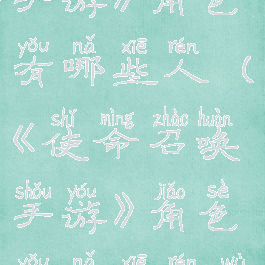 手游》角色
yǒu nǎ xiē rén
有哪些人（
shǐ mìng zhào huàn
《使命召唤
shǒu yóu jiǎo sè
手游》角色
yǒu nǎ xiē rén wù